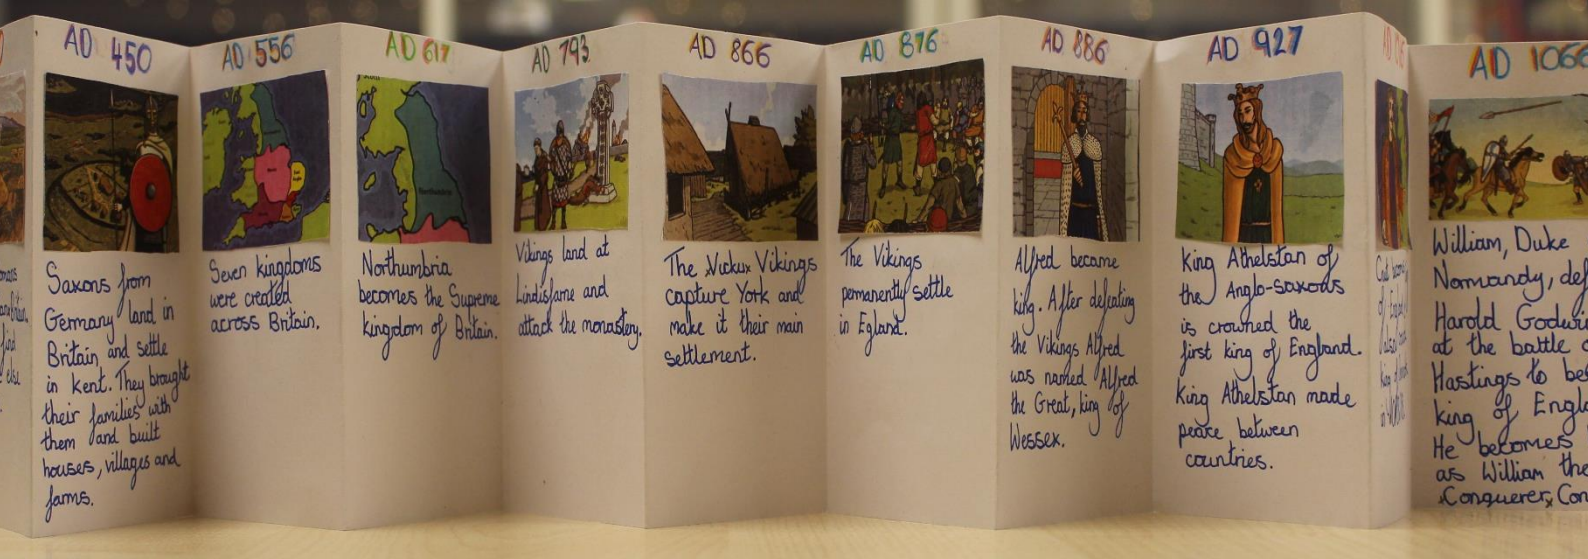 AD 450
Saxons from
Germany land in
Britain and settle
in Kent. They brought
their families with
them and built
houses, villages and
farms.
AD 556
Seven kingdoms
were created
across Britain.
AD 617
Northumbria
becomes the Supreme
kingdom of Britain.
AD 793
Vikings land at
Lindisfarne and
attack the monastery.
AD 866
The Vikings
capture York and
make it their main
settlement.
AD 876
The Vikings
permanently settle
in Egland.
AD 886
Alfred became
king. After defeating
the Vikings Alfred
was named Alfred
the Great, king of
Wessex.
AD 927
King Athelstan of
the Anglo-saxons
is crowned the
first king of England.
King Athelstan made
peace between
countries.
AD 1066
William, Duke
Normandy, def
Harold Godwi
at the battle
Hastings to be
king of Engl
He becomes
as William the
Conquerer, Con